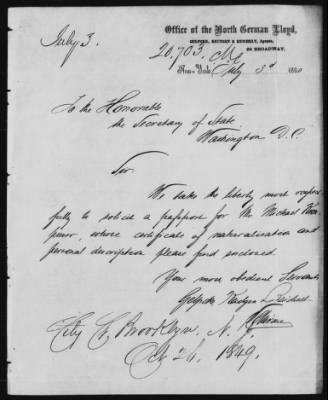 July 3.
Office of the North German Lloyd,
GELPCKE, KEUTGEN & REICHELT, Agents,
BROADWAY.
20,703
New York July 3d
To the Honorable
the Secretary of State
Washington D.C.
Sir.
We take the liberty most respect
fully to solicit a passport for Mr. Michael
whose certificate of naturalisation and
personal description please find enclosed.
Your most obedient Servants
Gelpcke Keutgen Reichelt
City Ct, Brooklyn. N.Y.
26, 1849.